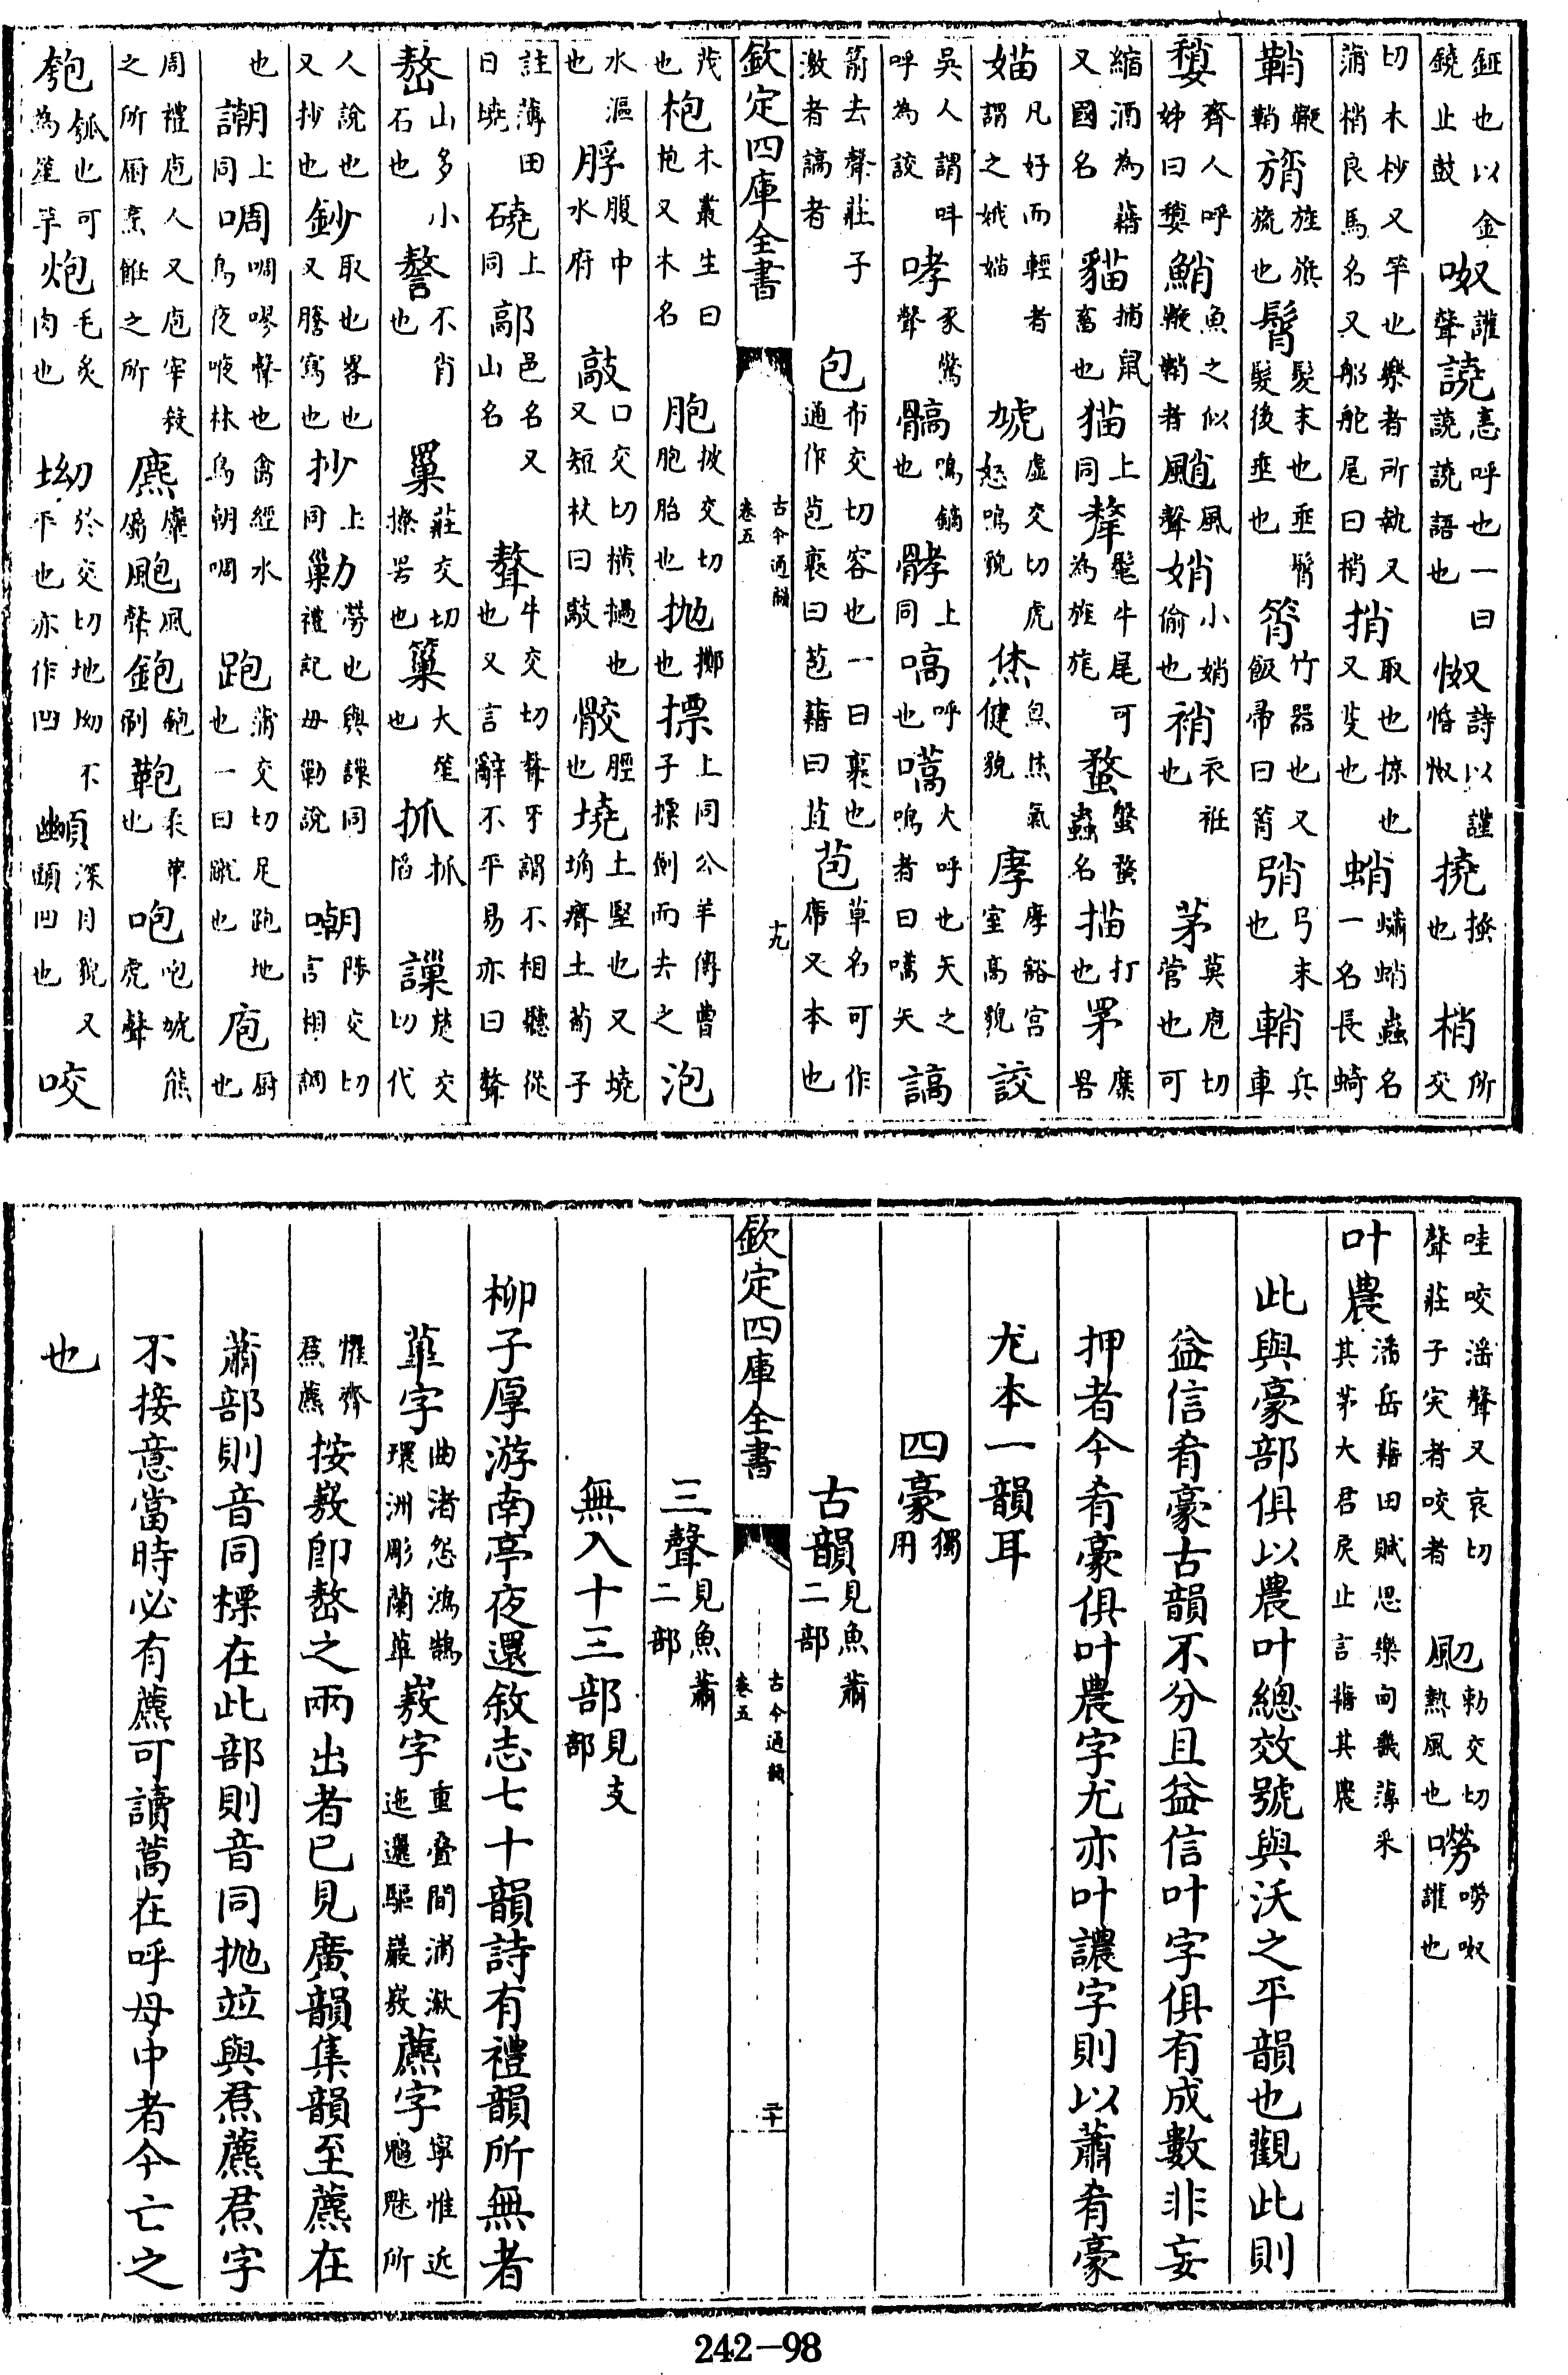 鉦也以金鐃止鼓呶讙聲譊恚呼也一曰譊譊語也怓詩以謹惽怓撓撓也梢所交
切木杪又竿也樂者所執又蒲梢良馬名又船舵尾曰梢捎取也掠也又芟也蛸蠨蛸蟲名一名長蜻
鞘鞭鞘旓旌旗旒也髾髮末也垂髾髮後垂也筲竹器也又飯帚曰筲弰弓末也䡟兵車
媝齊人呼姊曰媝鮹魚之似鞭鞘者颵風聲娋小娋偷也䘯衣袵也茅莫庖切菅也可
縮酒為藉又國名貓捕鼠畜也猫上同氂髦牛尾可為旌旄蝥蟹蝥蟲名描打也罞麋罟
媌凡好而輕者謂之娥媌虓虛交切虎怒鳴貌烋炰烋氣健貌庨庨豁宮室高貌詨
吳人謂叫呼為詨哮豕驚聲髇鳴鏑也髐上同嗃呼也嚆大呼也矢之鳴者曰嚆矢謞
箭去聲莊子激者謞者包布交切容也一曰裹也通作苞裹曰苞藉曰苴苞草名可作席又本也
欽定四庫全書 古今通韻卷五 十九
茂也枹木叢生曰枹又木名胞披交切胞胎也拋擲也摽上同公羊傳曹子摽劍而去之泡
水漚也脬腹中水府敲口交切橫撾也又短杖曰敲骹脛也墝土堅也又墝埆瘠土荀子
註薄田曰墝磽上同鄗邑名又山名聱牛交切聱牙謂不相聽從也又言辭不平易亦曰聱
嶅山多小石也謷不肖也巢莊交切撩罟也䉥大笙也抓抓掐𧬨楚交切代
人說也又抄也鈔取也畧也又謄寫也抄上同勦勞也與𧬨同禮記毋勦說嘲陟交切言相調
也謿上同啁啁嘐聲也禽經水鳥夜㖡林鳥朝啁跑蒲交切足跑地也一曰蹴也庖廚也
周禮庖人又庖宰殺之所廚烹飪之所麃麃屬颮風聲鉋鉋刷鞄柔革也咆咆虓熊虎聲
匏瓠也可為笙竽炮毛炙肉也坳於交切地坳不平也亦作凹䫜深目貌又頭凹也咬
哇咬淫聲又哀切聲莊子宎者咬者䫸勑交切熱風也嘮嘮呶讙也
叶農潘岳藉田賦思樂甸畿薄采其茅大君戾止言藉其農
此與豪部俱以農叶總效號與沃之平韻也觀此則
益信肴豪古韻不分且益信叶字俱有成數非妄
押者今肴豪俱叶農字尤亦叶譨字則以蕭肴豪
尤本一韻耳
四豪獨用
古韻見魚蕭二部
欽定四庫全書 古今通韻卷五 二十
三聲見魚蕭二部
無入十三部見支部
柳子厚游南亭夜還敘志七十韻詩有禮韻所無者
䔃字曲渚怨鴻鵠環洲彫蘭䔃嶅字重疊間浦漵迤邐驅巖嶅藨字寧惟近魑魅所
懼齊焄藨按嶅卽嶅之兩出者已見廣韻集韻至藨在
蕭部則音同標在此部則音同拋竝與焄藨焄字
不接意當時必有藨可讀蒿在呼母中者今亡之
也
242—98